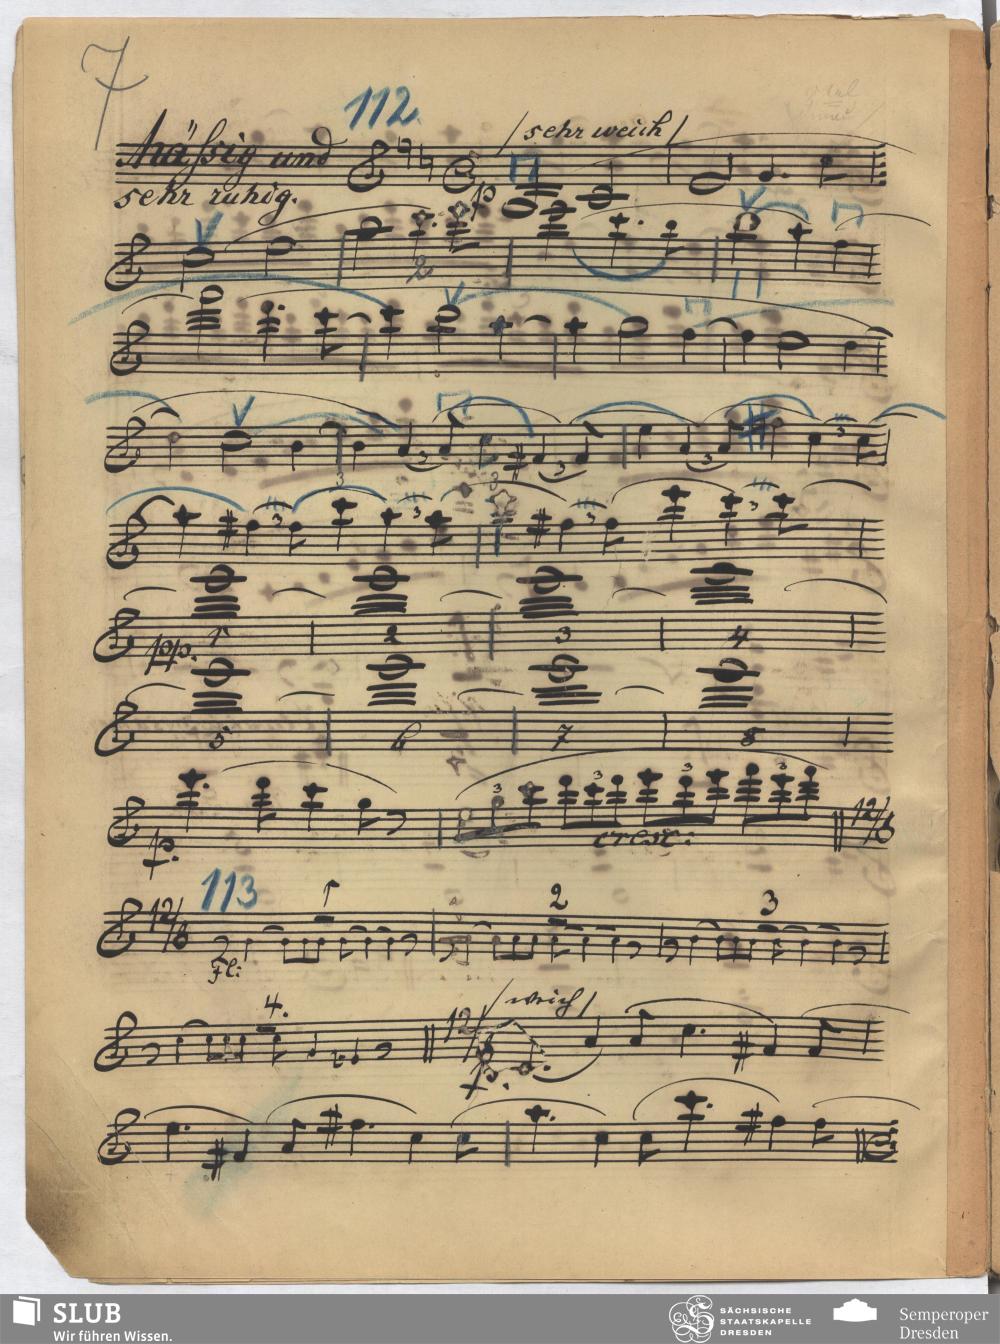 7
112
Mäßig und
sehr ruhig.
/sehr weich/
p
2
3
3
3
3
3
3
3
3
3
pp.
1
2
3
4
5
6
7
8
p.
3
3
3
3
cresc:
12/8
113
12/8
1
2
3
Fl:
4.
/weich/
12/8
p.
SLUB
Wir führen Wissen.
SÄCHSISCHE
STAATSKAPELLE
DRESDEN
Semperoper
Dresden